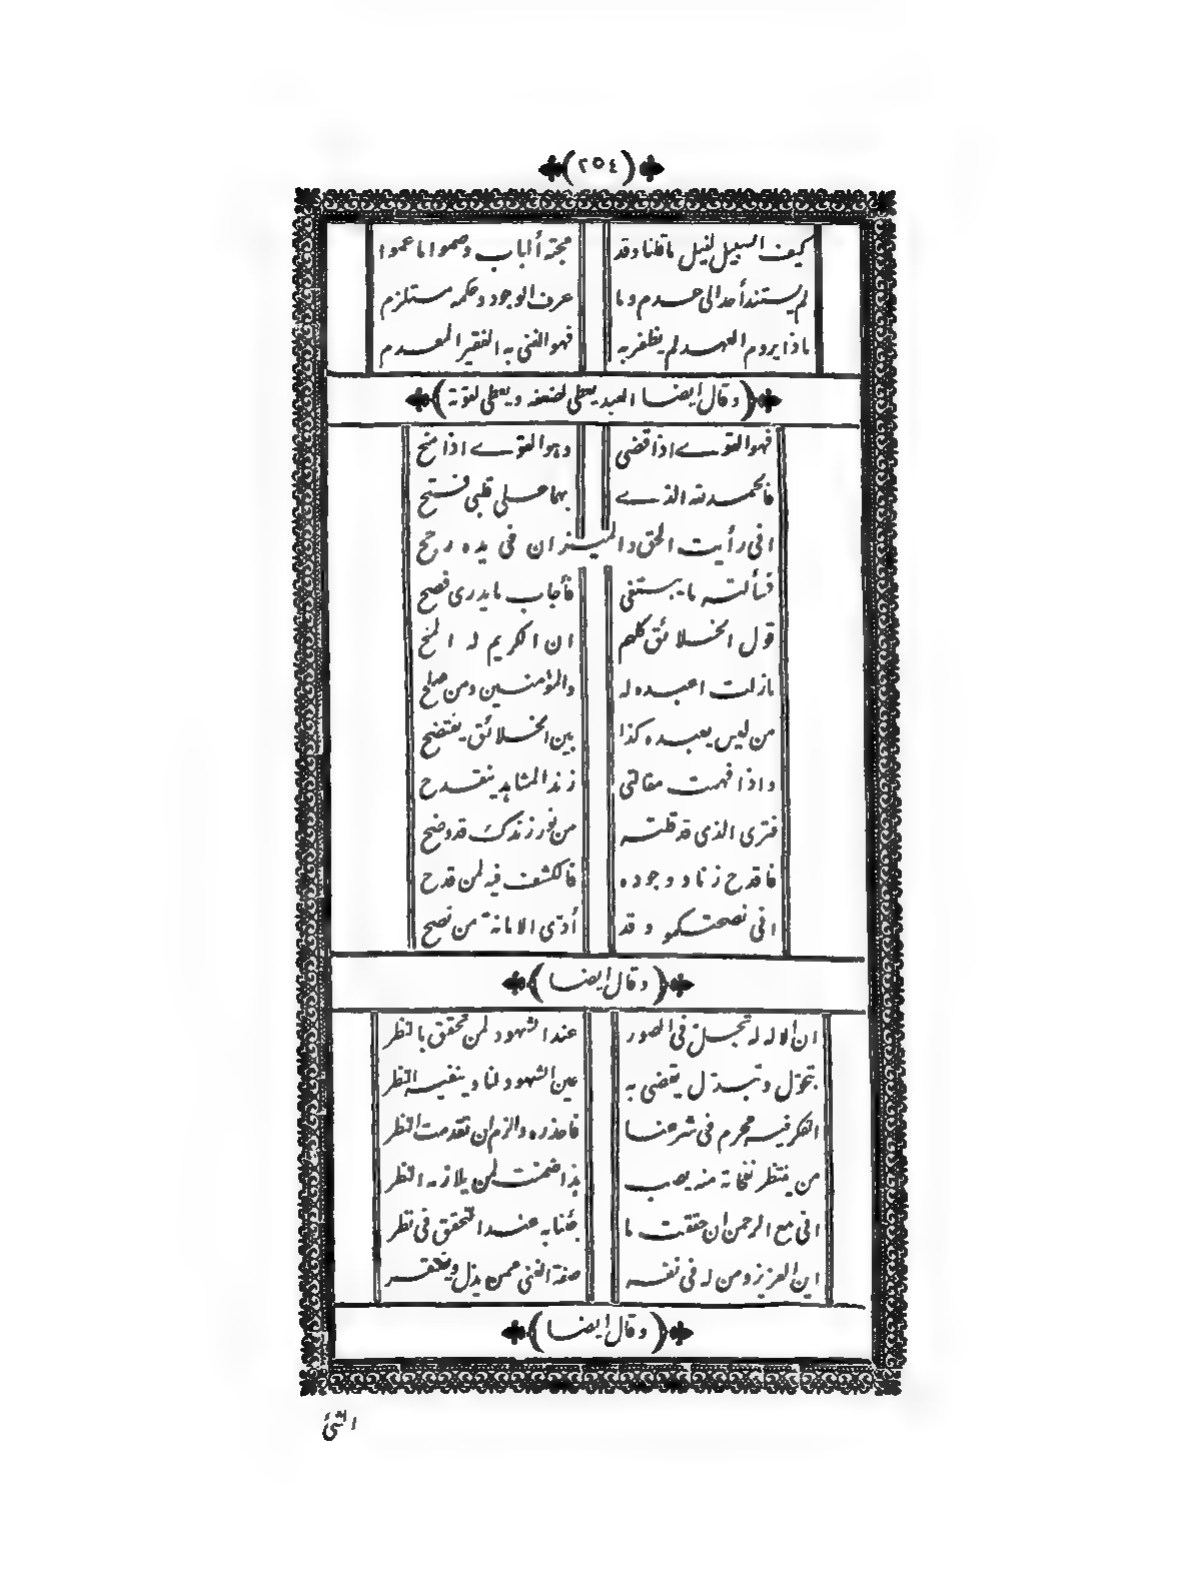 (٢٥٤)
كيف السبيل لنيل ماقلنا وقد مجته ألباب وصموا ما عموا
لم يستند أحد الى عدم وما عرف الوجود وحكمه مستلزم
ماذا يروم العبد لم يظفر به فهو الغنى به الفقير المعدم
(وقال أيضا العبد يعطى لضعفه ويعطى لقوته)
فهو القوى اذا قضى وهو القوى اذا منح
فالحمد لله الذى بهما على قلبى فتح
انى رأيت الحق والميزان فى يده رجح
فسألته ما يبتغى فأجاب ما يدرى فصح
قول الخلائق كلهم ان الكريم له المنح
مازلت اعبده له والمؤمنين ومن صلح
من ليس يعبده كذا بين الخلائق يفتضح
واذا فهمت مقالتى زند المشاهد ينقدح
فترى الذى قد قلته من نور زندك قد وضح
فاقدح زناد وجوده فالكشف فيه لمن قدح
انى نصحتكمو وقد أدّى الامانة من نصح
(وقال أيضا)
ان الاله له تجلّ فى الصور عند الشهود لمن تحقق بالنظر
بتحوّل وتبدّل يقضى به عين الشهود لنا وينفيه النظر
الفكر فيه محرم فى شرعنا فاحذره والزم ان تقدمت النظر
من ينتظر نفحاته منه يصب بذا ضمنت لمن يلازمه النظر
انى مع الرحمن ان حققت ما جئنا به عند التحقق فى نظر
اين العزيز ومن له فى نفسه صفة الغنى ممن يذل ويفتقر
(وقال أيضا)
الشئ